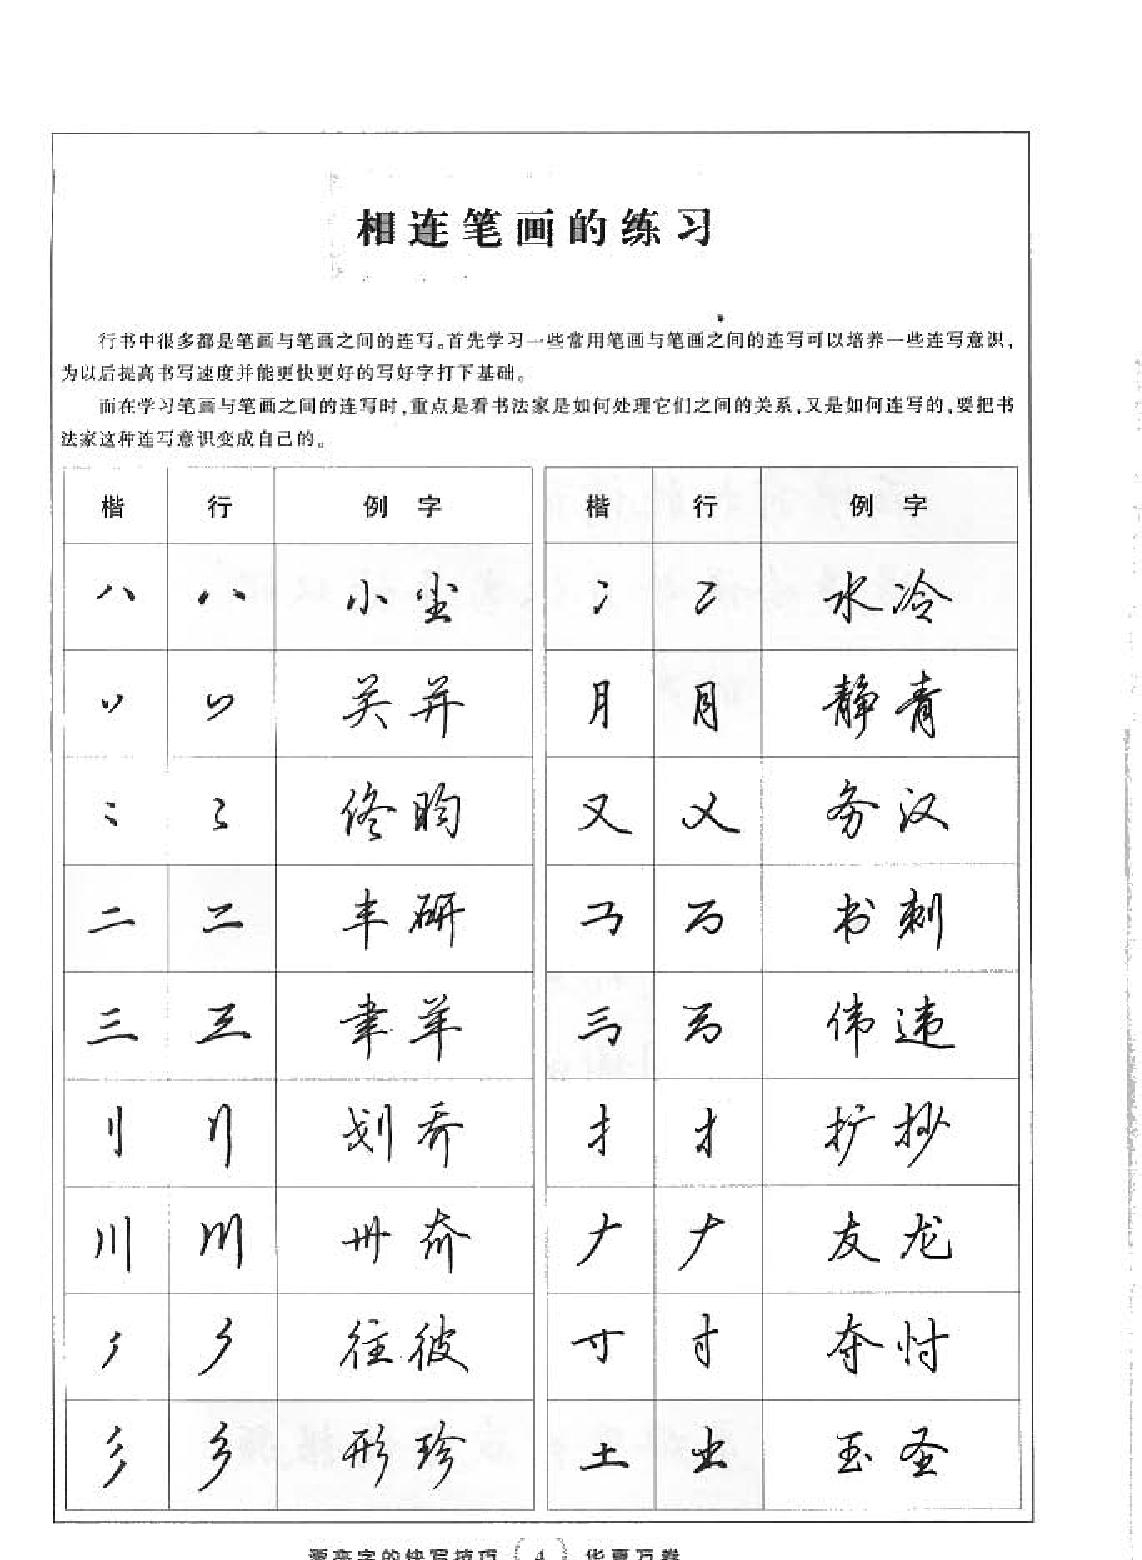 相连笔画的练习
行书中很多都是笔画与笔画之间的连写。首先学习一些常用笔画与笔画之间的连写可以培养一些连写意识，
为以后提高书写速度并能更快更好的写好字打下基础。
而在学习笔画与笔画之间的连写时，重点是看书法家是如何处理它们之间的关系，又是如何连写的，要把书
法家这种连写意识变成自己的。
楷 行 例字 楷 行 例字
八 八 小尘 冫 冫 水冷
丷 丷 关并 月 月 静青
佟昀 又 又 务汉
二 二 丰研 书刺
三 三 聿羊 伟违
刂 刂 划乔 扌 扌 扩抄
川 川 卅奇 𠂇 𠂇 友龙
往彼 寸 寸 夺忖
彡 彡 形珍 土 土 玉圣
4 华夏万卷